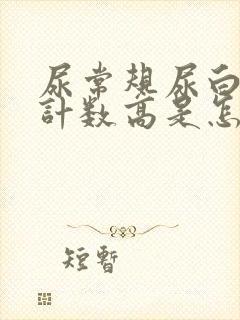 尿常规尿白
計数高是怎
短暫